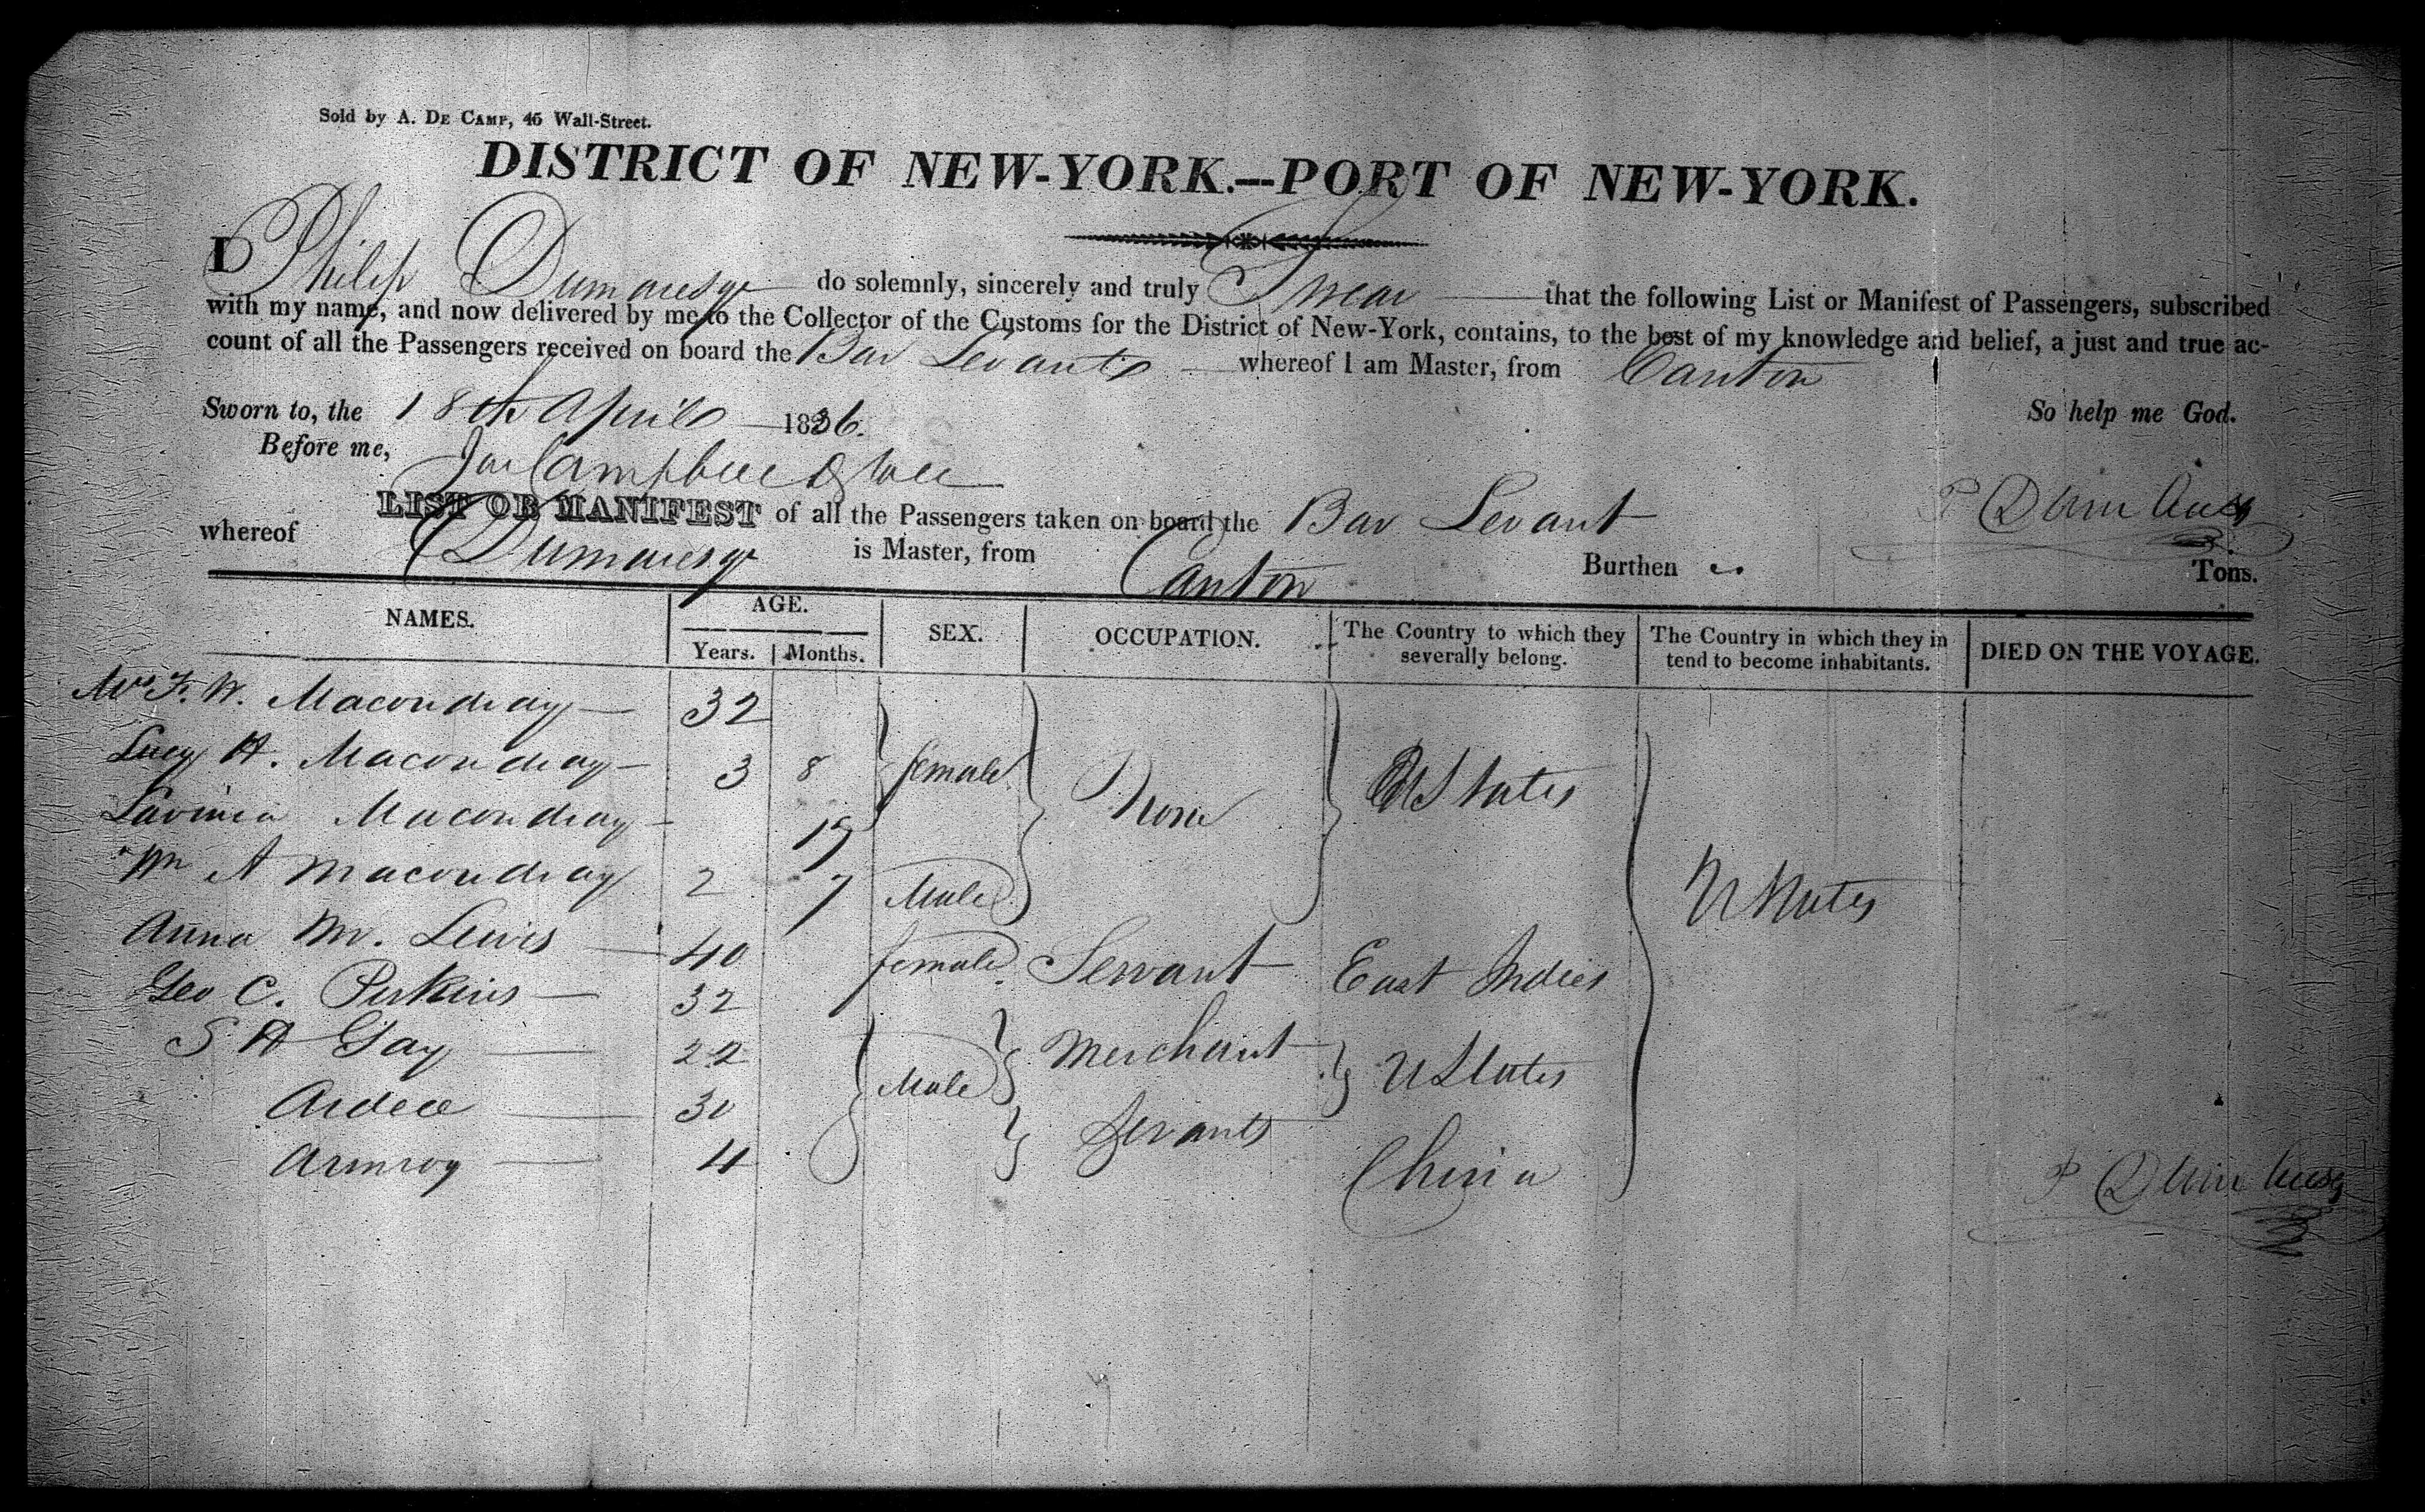 Sold by A. DE CAMP, 45 Wall-Street.
DISTRICT OF NEW-YORK.—PORT OF NEW-YORK.
I Philip Dumaresq do solemnly, sincerely and truly Swear that the following List or Manifest of Passengers, subscribed
with my name, and now delivered by me to the Collector of the Customs for the District of New-York, contains, to the best of my knowledge and belief, a just and true ac-
count of all the Passengers received on board the Bar Levant whereof I am Master, from Canton
Sworn to, the 18th April 1836. So help me God.
Before me, Campbell
P Dumaresq
LIST OR MANIFEST of all the Passengers taken on board the Bar Levant
whereof Dumaresq is Master, from Canton Burthen Tons.
NAMES. AGE. Years. Months. SEX. OCCUPATION. The Country to which they severally belong. The Country in which they intend to become inhabitants. DIED ON THE VOYAGE.
Mrs F. W. Macondray 32
Lucy A. Macondray 3 8 female None U States
Lavinia Macondray 19
Wm A Macondray 2 7 Male U States
Anna M. Lewis 40 female Servant East Indies
Geo C. Perkins 32
S A Gay 22 Male Merchant U States
30 Servants
Armroy 4 China
P Dumaresq